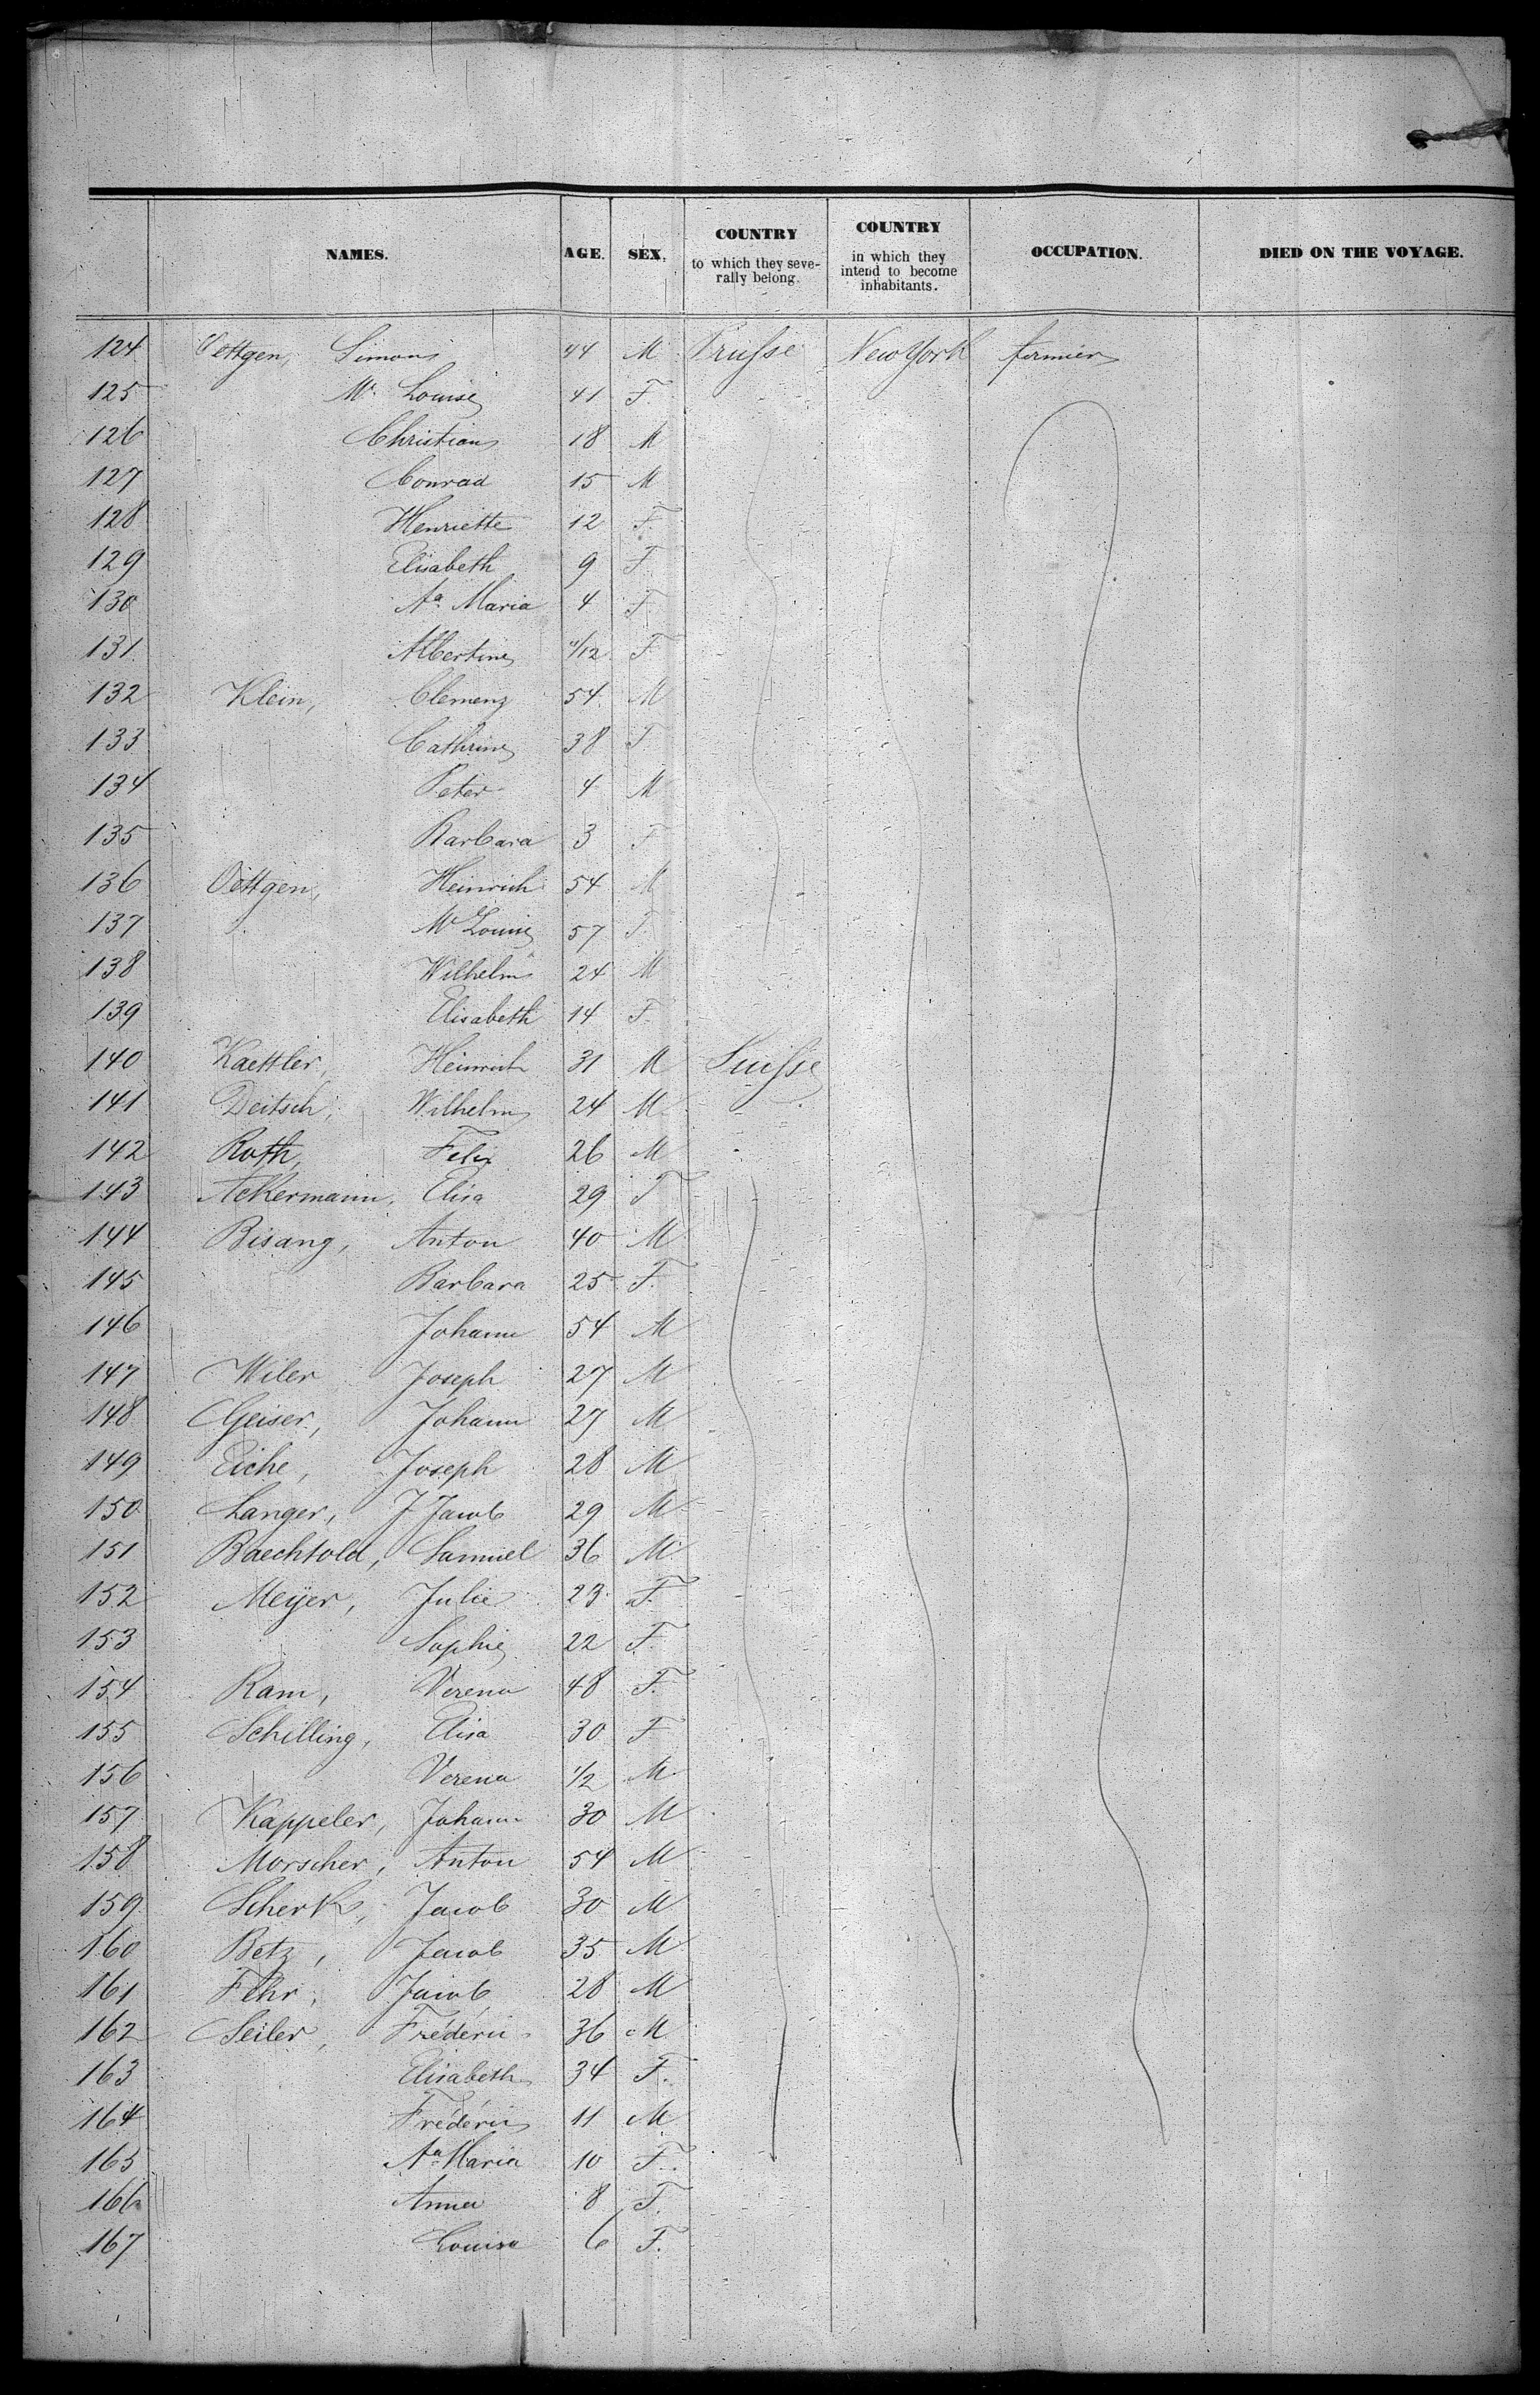 NAMES. AGE. SEX. COUNTRY to which they severally belong. COUNTRY in which they intend to become inhabitants. OCCUPATION. DIED ON THE VOYAGE.
124 Oettgen, Simon 44 M Prusse New York fermier
125 Me. Louise 41 F.
126 Christian 18 M
127 Conrad 15 M
128 Henriette 12 F.
129 Elisabeth 9 F
130 Aa. Maria 4 F
131 Albertine 11/12 F
132 Klein, Clemenz 54 M
133 Cathrine 38 F
134 Peter 4 M
135 Barbara 3 F
136 Oettgen, Heinrich 54 M
137 Me Louise 57 F.
138 Wilhelm 24 M
139 Elisabeth 14 F.
140 Kaettler, Heinrich 31 M Suisse
141 Deitsch, Wilhelm 24 M.
142 Roth, Felix 26 M
143 Ackermann, Elisa 29 F
144 Bisang, Anton 40 M
145 Barbara 25 F.
146 Johann 54 M
147 Wiler Joseph 27 M
148 Geiser, Johann 27 M
149 Eiche, Joseph 28 M
150 Langer, J Jacob 29 M
151 Baechtold, Samuel 36 M
152 Meyer, Julie 23 F.
153 Sophie 22 F.
154 Ram, Verena 48 F.
155 Schilling, Elisa 30 F
156 Verena 1/2 M
157 Kappeler, Johann 30 M
158 Morscher, Anton 54 M
159 Scherk, Jacob 30 M
160 Betz, Jacob 35 M
161 Fehr, Jacob 28 M
162 Seiler, Fréderic 36 M
163 Elisabeth 34 F.
164 Fréderic 11 M
165 Aa Maria 10 F.
166 Anna 8 F.
167 Louisa 6 F.